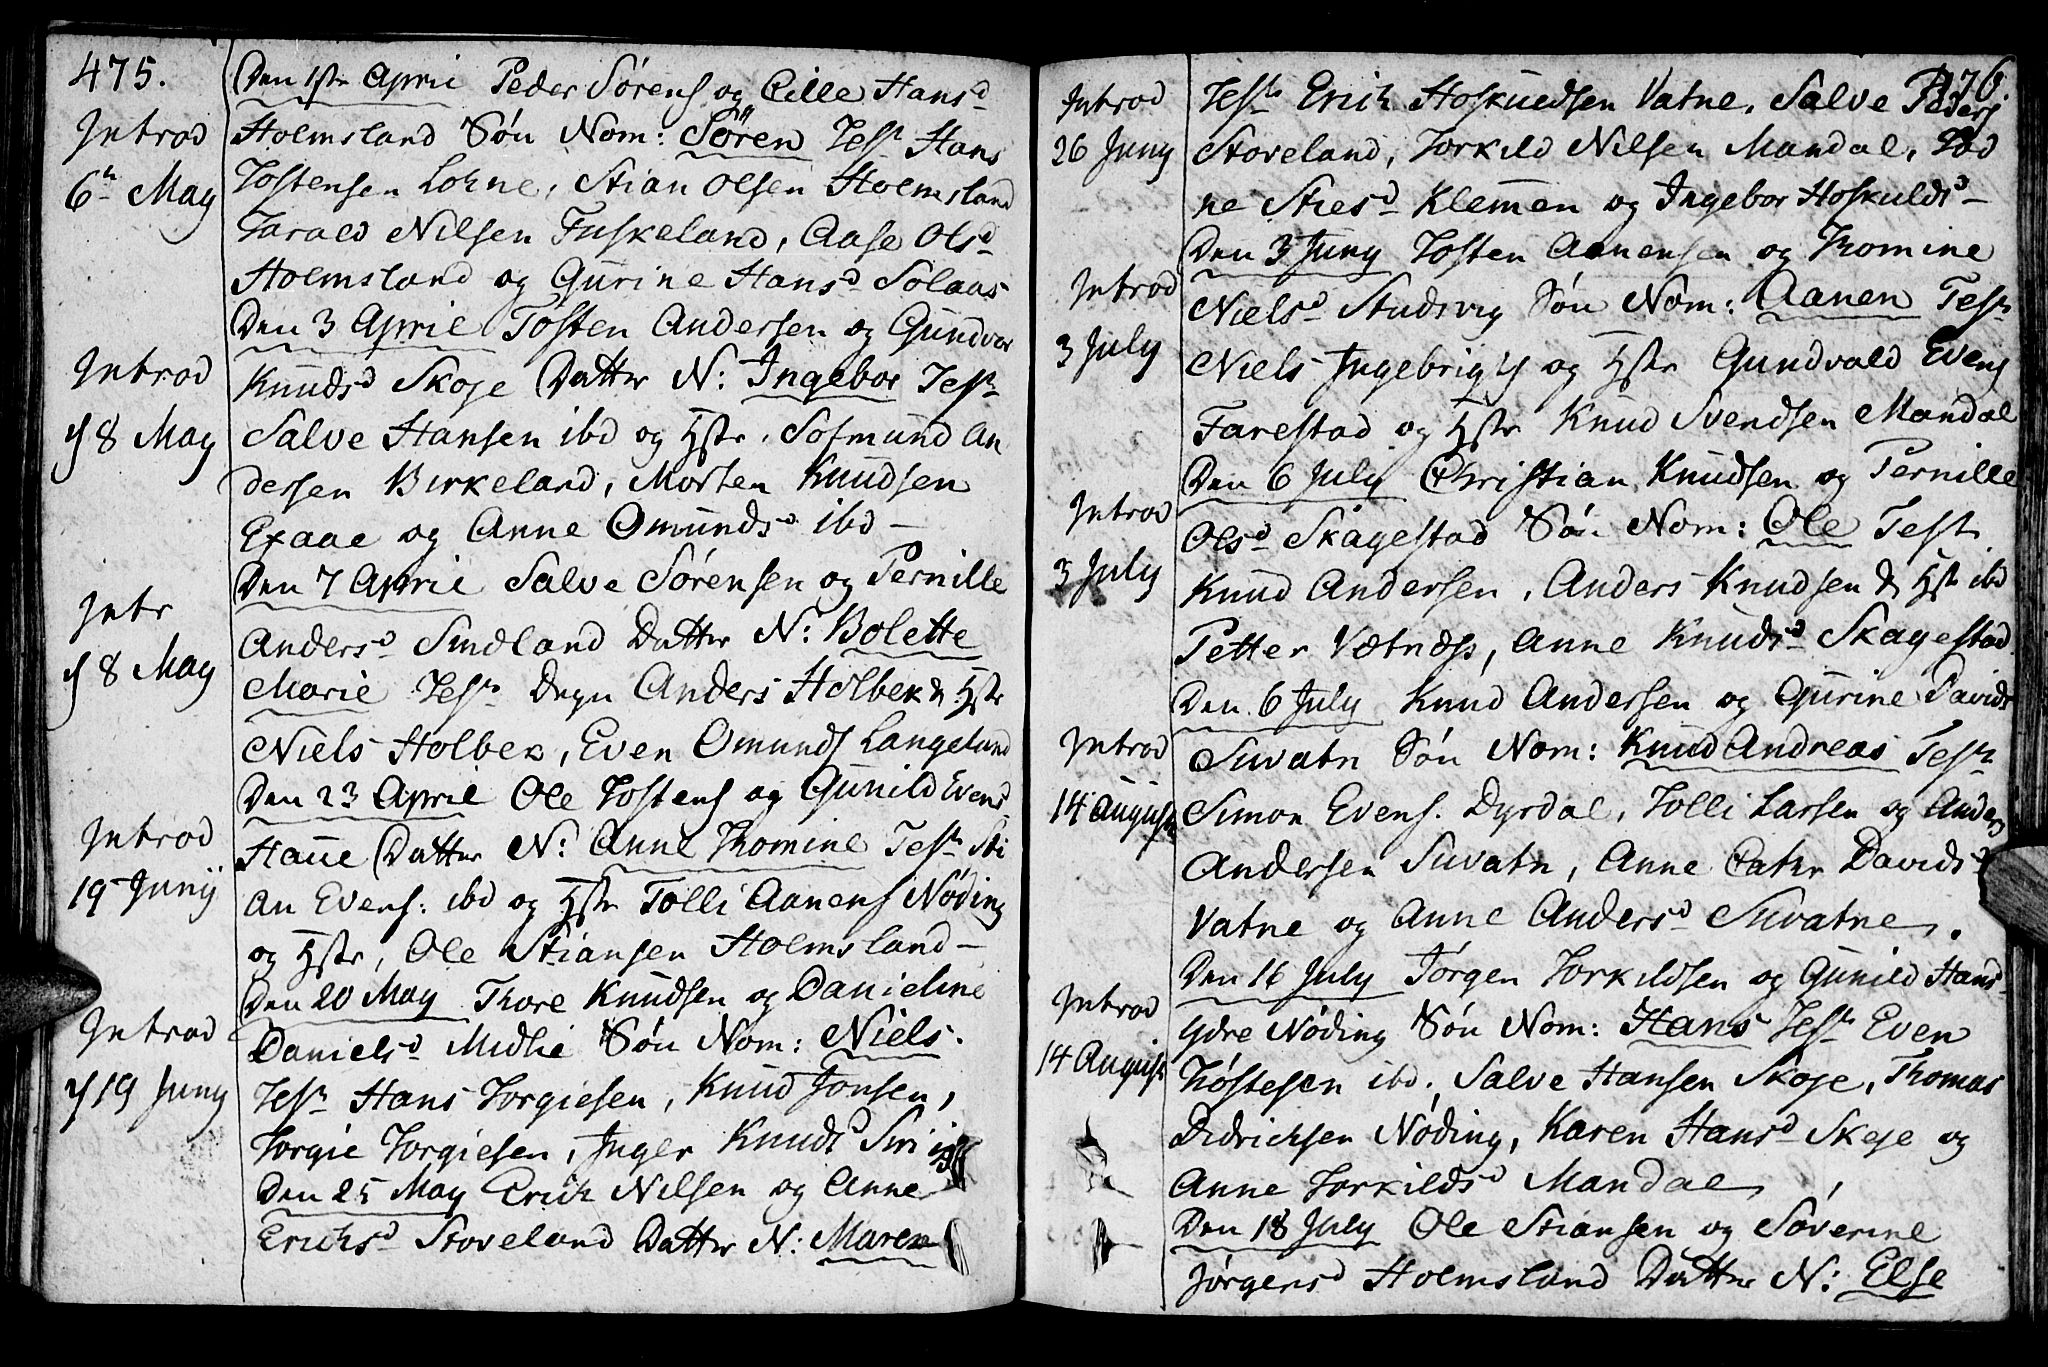 475.
Den 1ste April Peder Sörens og Cille Hansd
Introd
Holmsland Sön Nom: Sören Test Hans
6te May
Tostensen Lohne, Stian Olsen Holmsland
Tarald Nilsen Fuskeland, Aase Olsd
Holmsland og Gurine Hansd Solaas
Den 3 April Tosten Andersen og Gundvor
Introd
Knudsd Skoje Datter N: Ingebor Test
18 May
Salve Hansen ibd og Hstr. Sofmund An
dersen Birkeland, Morten Knudsen
Exaae og Anne Omundsd ibd
Den 7 April Salve Sörensen og Pernille
Intr
Andersd Sudland Datter N: Bolette
18 May
Marie Test Degn Anders Holbek & Hstr
Niels Holbek, Even Omunds Langeland
Den 23 April Ole Tostens og Gunild Evensd
Introd
Haue Datter N: Anne Thomine Test Sti
19 Junij
an Evens: ibd og Hstr Tolli Aanens Nöding
og Hstr, Ole Stiansen Holmsland
Den 20 May Thore Knudsen og Danieline
Introd
Danielsd Midlie Sön Nom: Niels.
19 Juny
Test Hans Torgiesen, Knud Jonsen,
Torgie Torgiesen, Inger Knudsd
Den 25 May Erich Nilsen og Anne
Erichsd Stoveland Datter N: Maren
476.
Introd
Test Erich Hoskuedsen Vatne, Salve Peders
26 Juny
Stoveland, Torkild Nilsen Mandal, Tod
ne Stiesd Klemmen og Ingebor Hoskuldsd
Den 3 Juny Tosten Aanensen og Thomine
Introd
Nielsd Studsvig Sön Nom: Aanen Test
3 July
Niels Ingebrigts og Hstr Gundvald Evens
Farestad og Hstr Knud Svendsen Mandal
Den 6 July Christian Knudsen og Pernille
Introd
Olsd Skagestad Sön Nom: Ole Test
3 July
Knud Andersen, Anders Knudsen & Hst ibd
Petter Vætnæss, Anne Knudsd Skagestad
Den 6 July Knud Andersen og Gurine Davids
Introd
Suvatn Sön Nom: Knud Andreas Test
14 August
Simon Evens. Dyrdal, Tolli Larsen og Anders
Andersen Suvatn, Anne Cathr Davidsd
Vatne og Anne Andersd Suvatne.
Den 16 July Jörgen Torkildsen og Gunild Hans
Introd
Ydre Nöding Sön Nom: Hans Test Even
14 August
Töstesen ibd, Salve Hansen Skoje, Thomas
Didrichsen Nöding, Karen Hansd Skeje og
Anne Torkildsd Mandal
Den 18 July Ole Stiansen og Söverine
Jörgensd Holmsland Datter N: Else